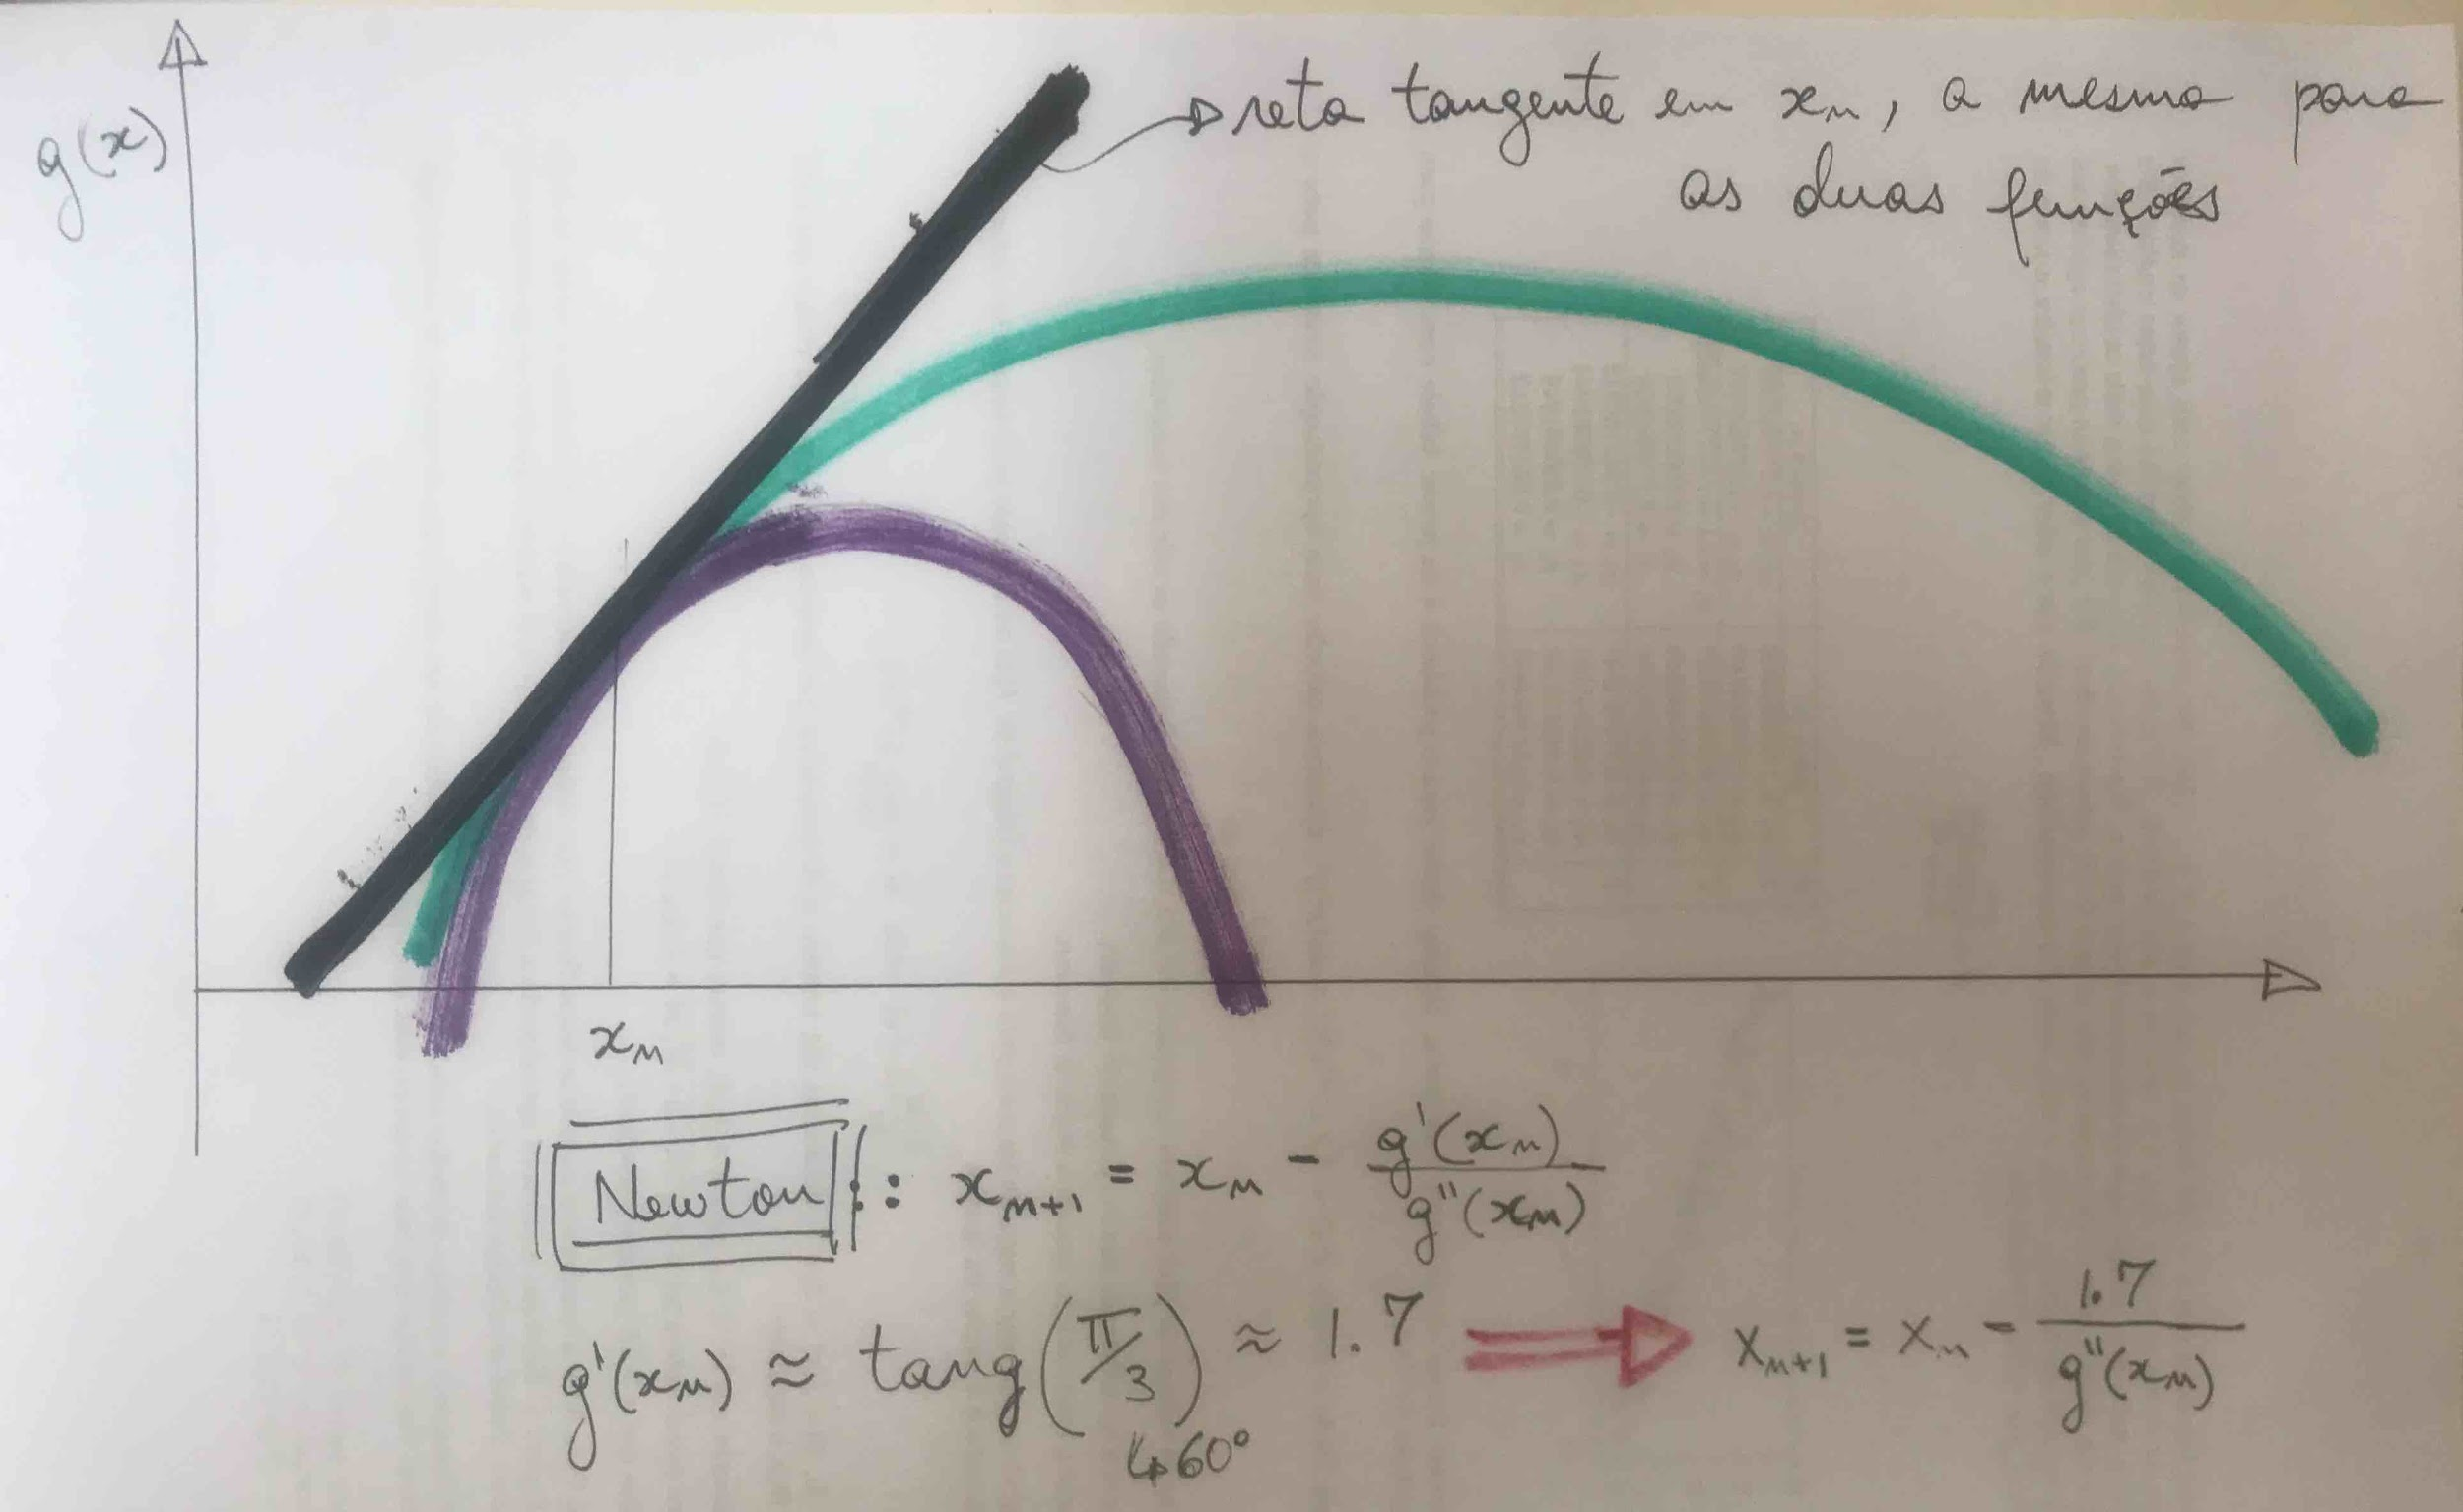 g(x)
reta tangente em xₙ, a mesma para
as duas funções
xₙ
Newton : xₙ₊₁ = xₙ - g'(xₙ)/g''(xₙ)
g'(xₙ) ≈ tang(π/3) ≈ 1.7 ⟹ xₙ₊₁ = xₙ - 1.7/g''(xₙ)
↳60°